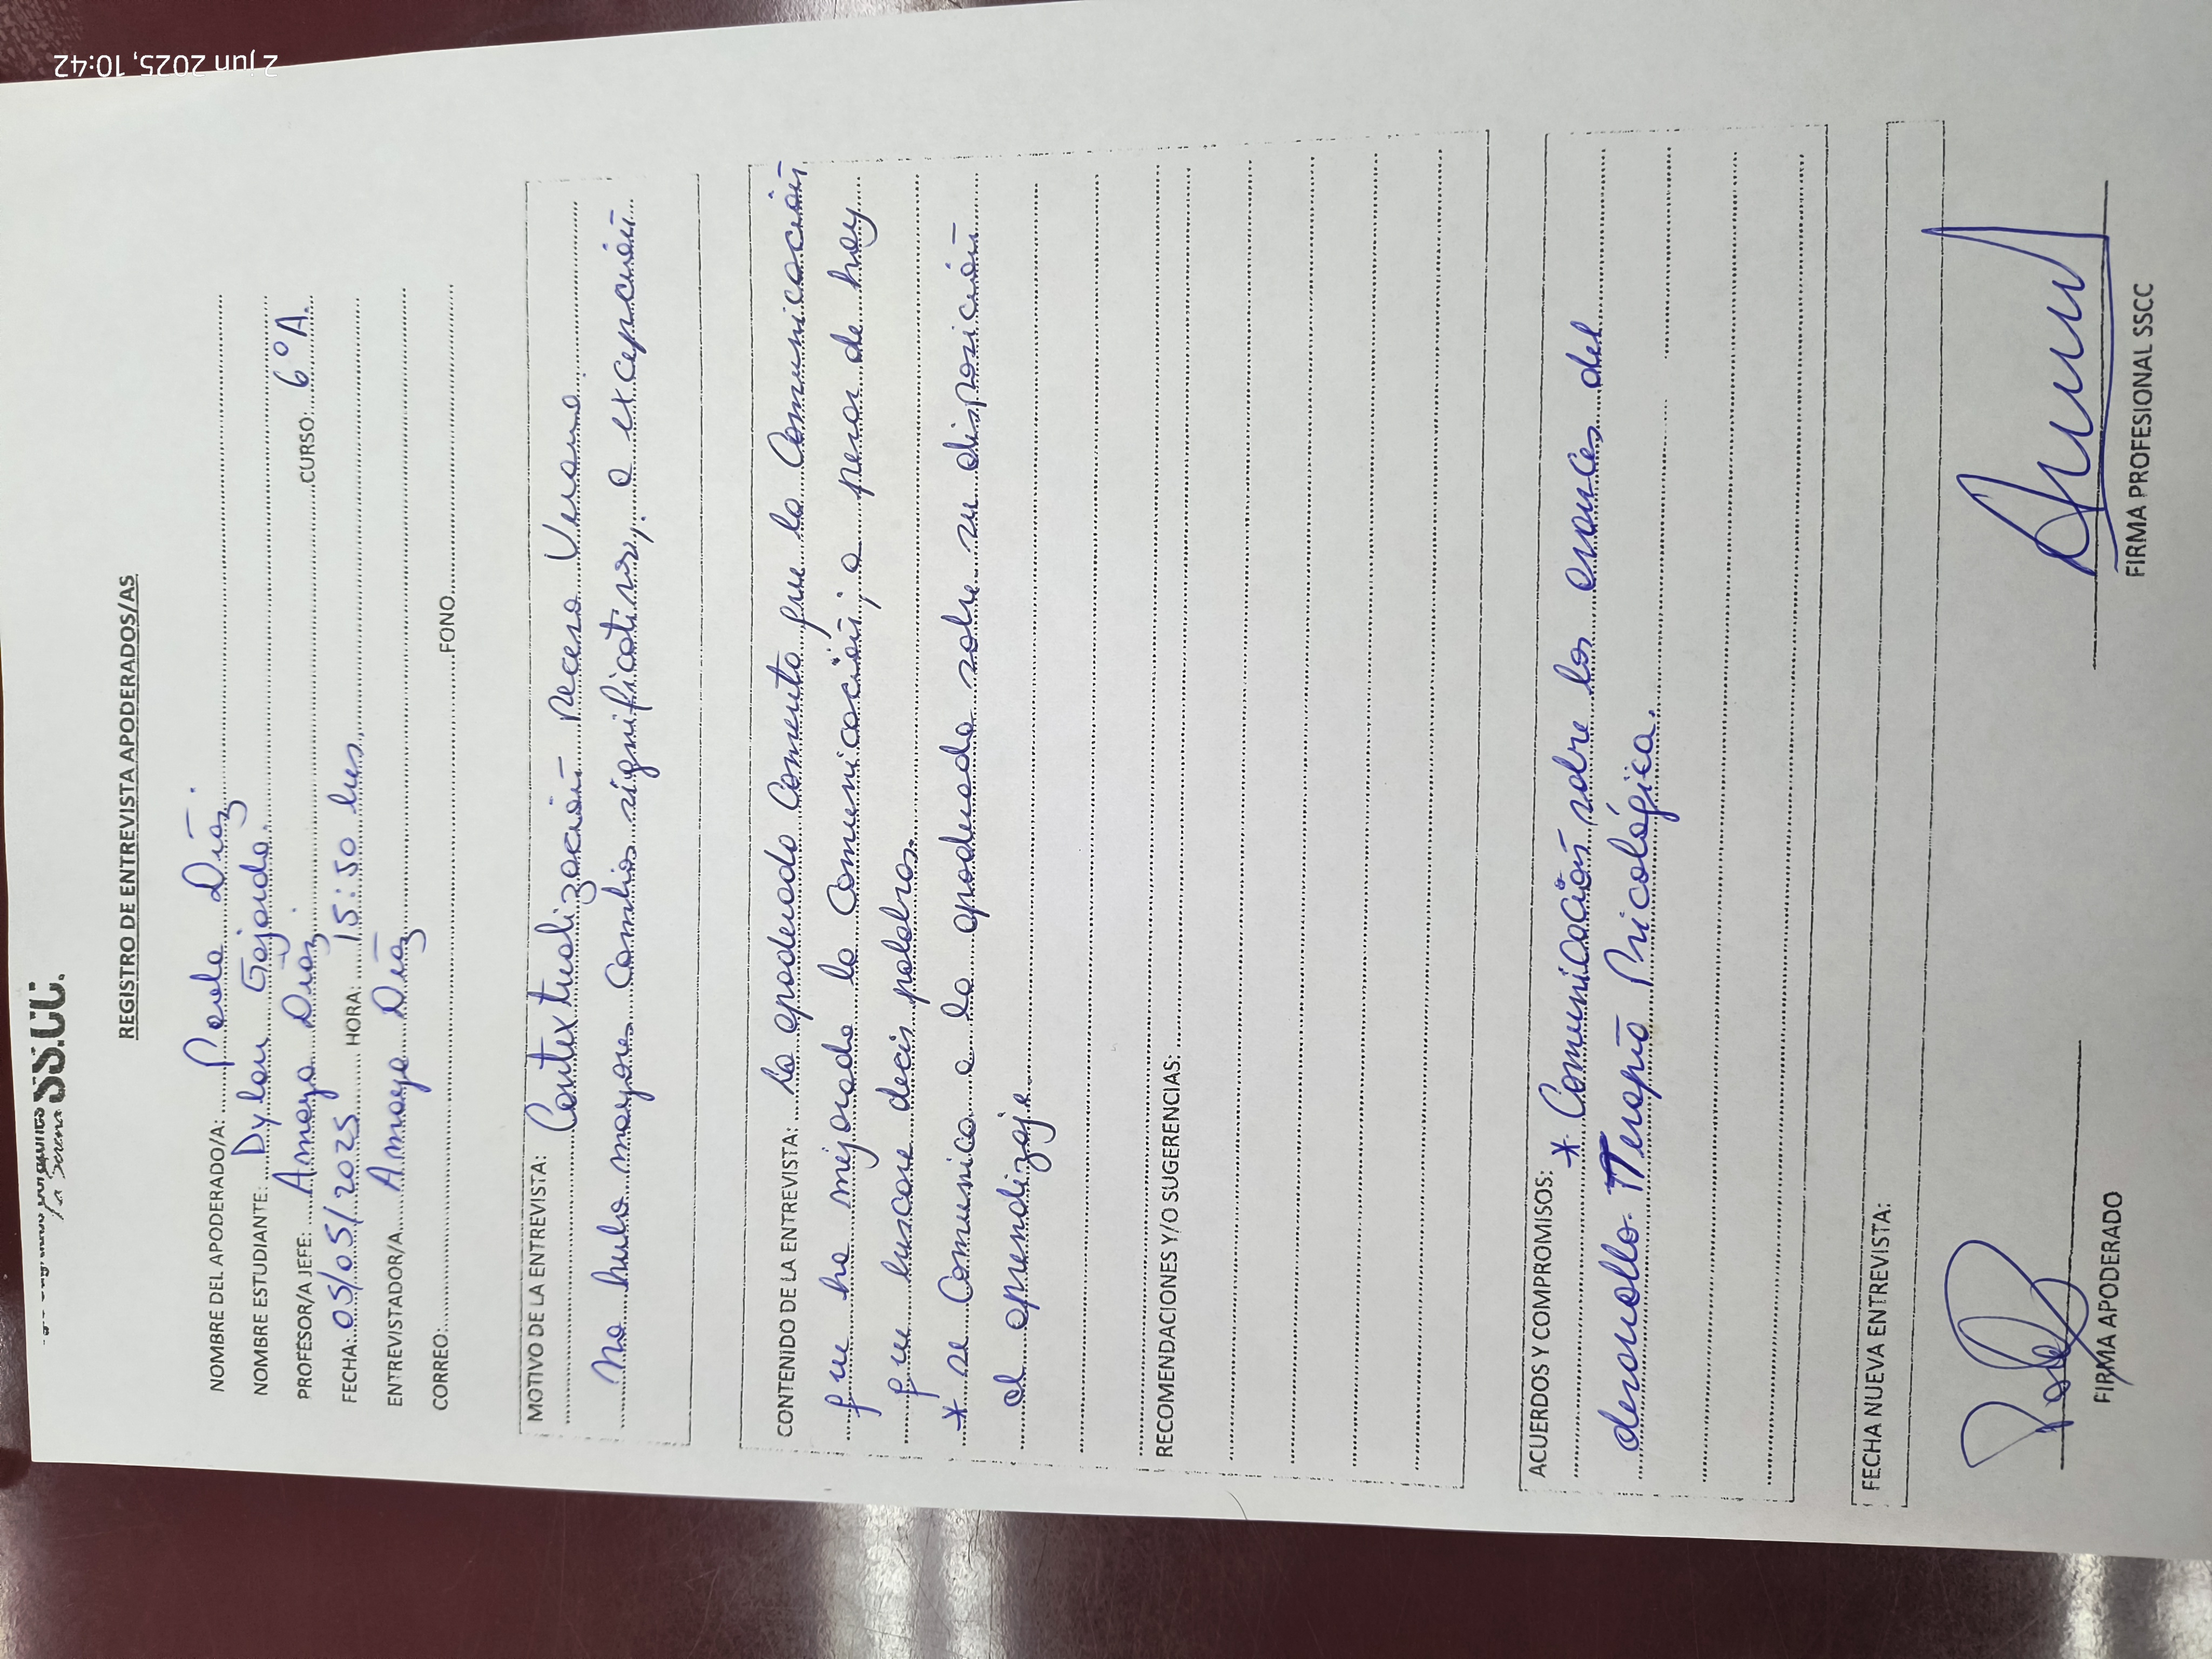 SS.CC.
La Serena
REGISTRO DE ENTREVISTA APODERADOS/AS
NOMBRE DEL APODERADO/A: Paola Díaz.
NOMBRE ESTUDIANTE: Dylan Gajardo.
PROFESOR/A JEFE: Amaya Díaz. CURSO: 6°A.
FECHA: 05/05/2025 HORA: 15:50 hrs
ENTREVISTADOR/A Amaya Díaz
CORREO: FONO
MOTIVO DE LA ENTREVISTA: Contextualización receso Verano.
No hubo mayores cambios significativos, a excepción
CONTENIDO DE LA ENTREVISTA: La apoderada comenta que la comunicación
que ha mejorado la comunicación, a pesar de hay
que buscare decir palabras.
* se comunica a la apoderada sobre su disposición
al aprendizaje
RECOMENDACIONES Y/O SUGERENCIAS:
ACUERDOS Y COMPROMISOS:
* Comunicación sobre los avances del
desarrollo Terapia Psicológica.
FECHA NUEVA ENTREVISTA:
FIRMA APODERADO FIRMA PROFESIONAL SSCC
2 jun 2025, 10:42